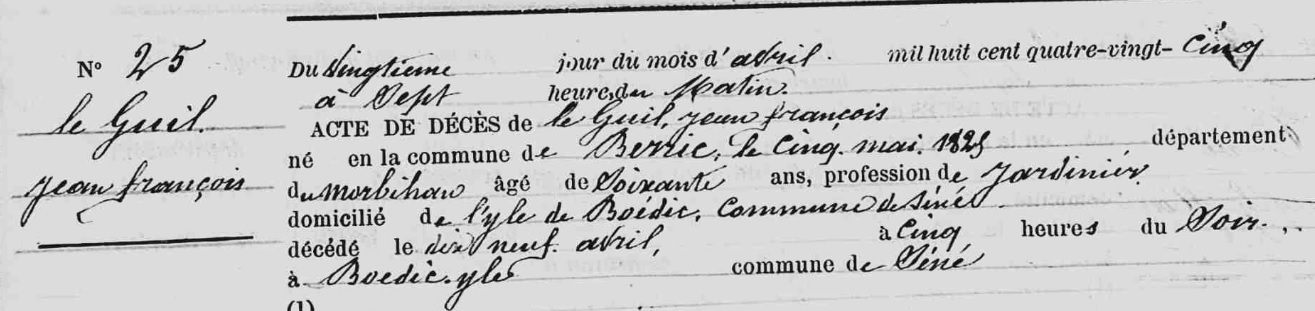 N° 25
le Guil.
jean françois
Du vingtième jour du mois d'avril. mil huit cent quatre-vingt-cinq
à Sept heures du Matin.
ACTE DE DÉCÈS de le Guil, jean françois
né en la commune de Berric, le Cinq. mai. 1825 département
du morbihan âgé de Soixante ans, profession de Jardinier
domicilié de l'yle de Boédic, Commune de Siné
décédé le dix neuf. avril, à Cinq heures du Soir.
à Boedic. yle commune de Siné
(1)